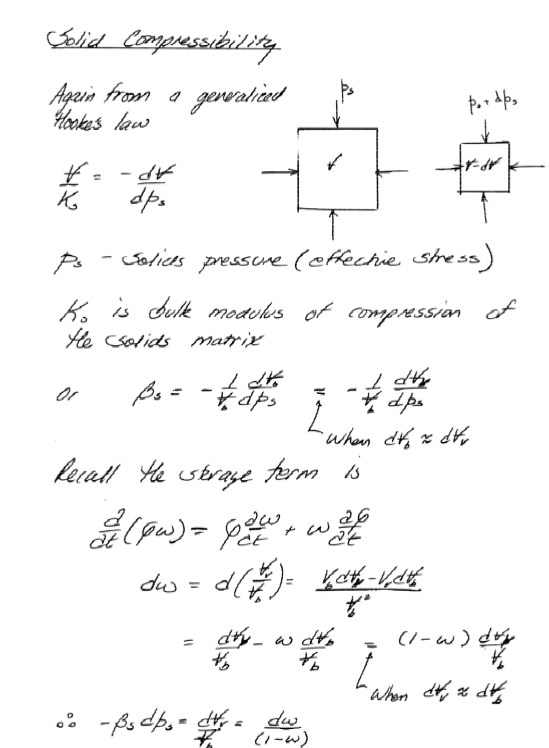 Solid Compressibility
Again from a generalized
Hooke's law
p_s
p_s + dp_s
V
V-dV
V/K_s = -dV/dp_s
p_s - Solids pressure (effective stress)
K_s is bulk modulus of compression of
the solids matrix
or β_s = -1/V_b dV_b/dp_s = -1/V_b dV_v/dp_s
when dV_b ≈ dV_v
Recall the storage term is
∂/∂t(ρω) = ρ∂ω/∂t + ω∂ρ/∂t
dω = d(V_v/V_b) = (V_b dV_v - V_v dV_b)/V_b²
= dV_v/V_b - ω dV_b/V_b = (1-ω) dV_v/V_b
when dV_v ≈ dV_b
∴ -β_s dp_s = dV_v/V_b = dω/(1-ω)